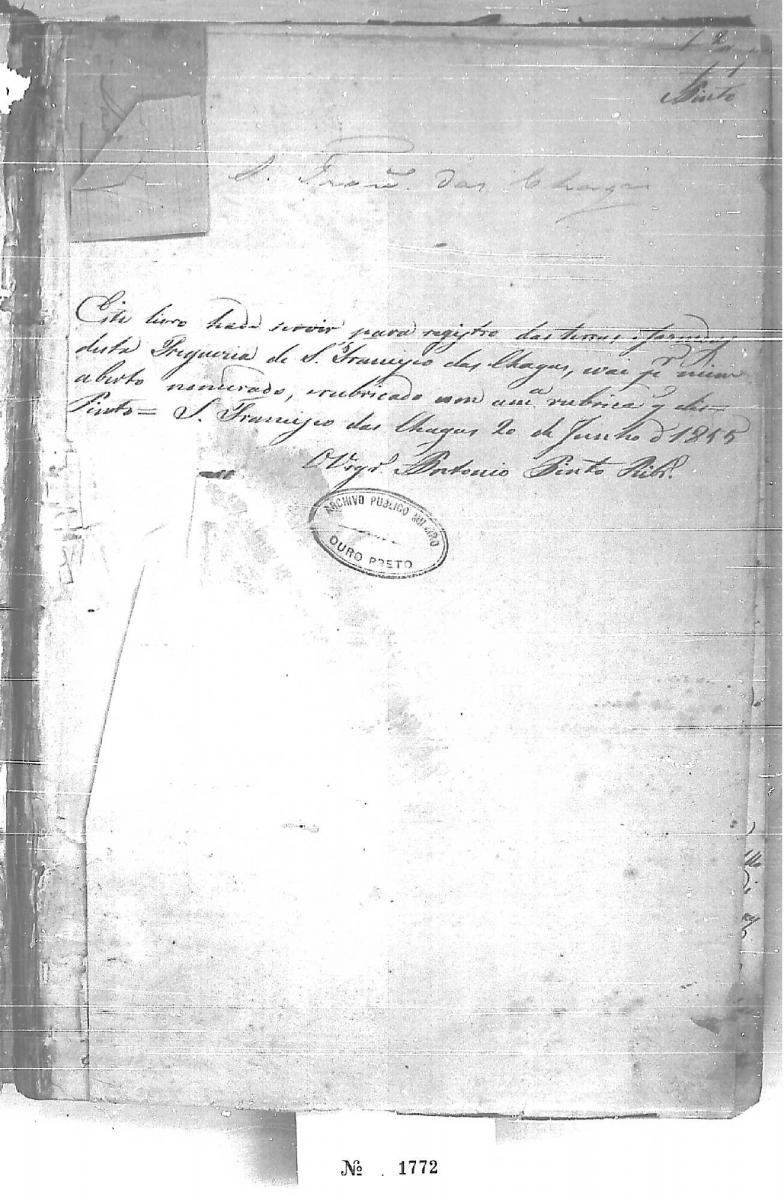 1
Pinto
S. Franc.º das Chagas
Este livro hade servir para registro das terras
desta Freguezia de S. Francisco das Chagas, vae pr mim
aberto numerado, erubricado com am.a rubrica q̃ diz=
Pinto= S. Francisco das Chagas 20 de Junho d 1855
O Vigr.o Antonio Pinto Ribr.
ARCHIVO PUBLICO MINEIRO
OURO PRETO
Nº 1772